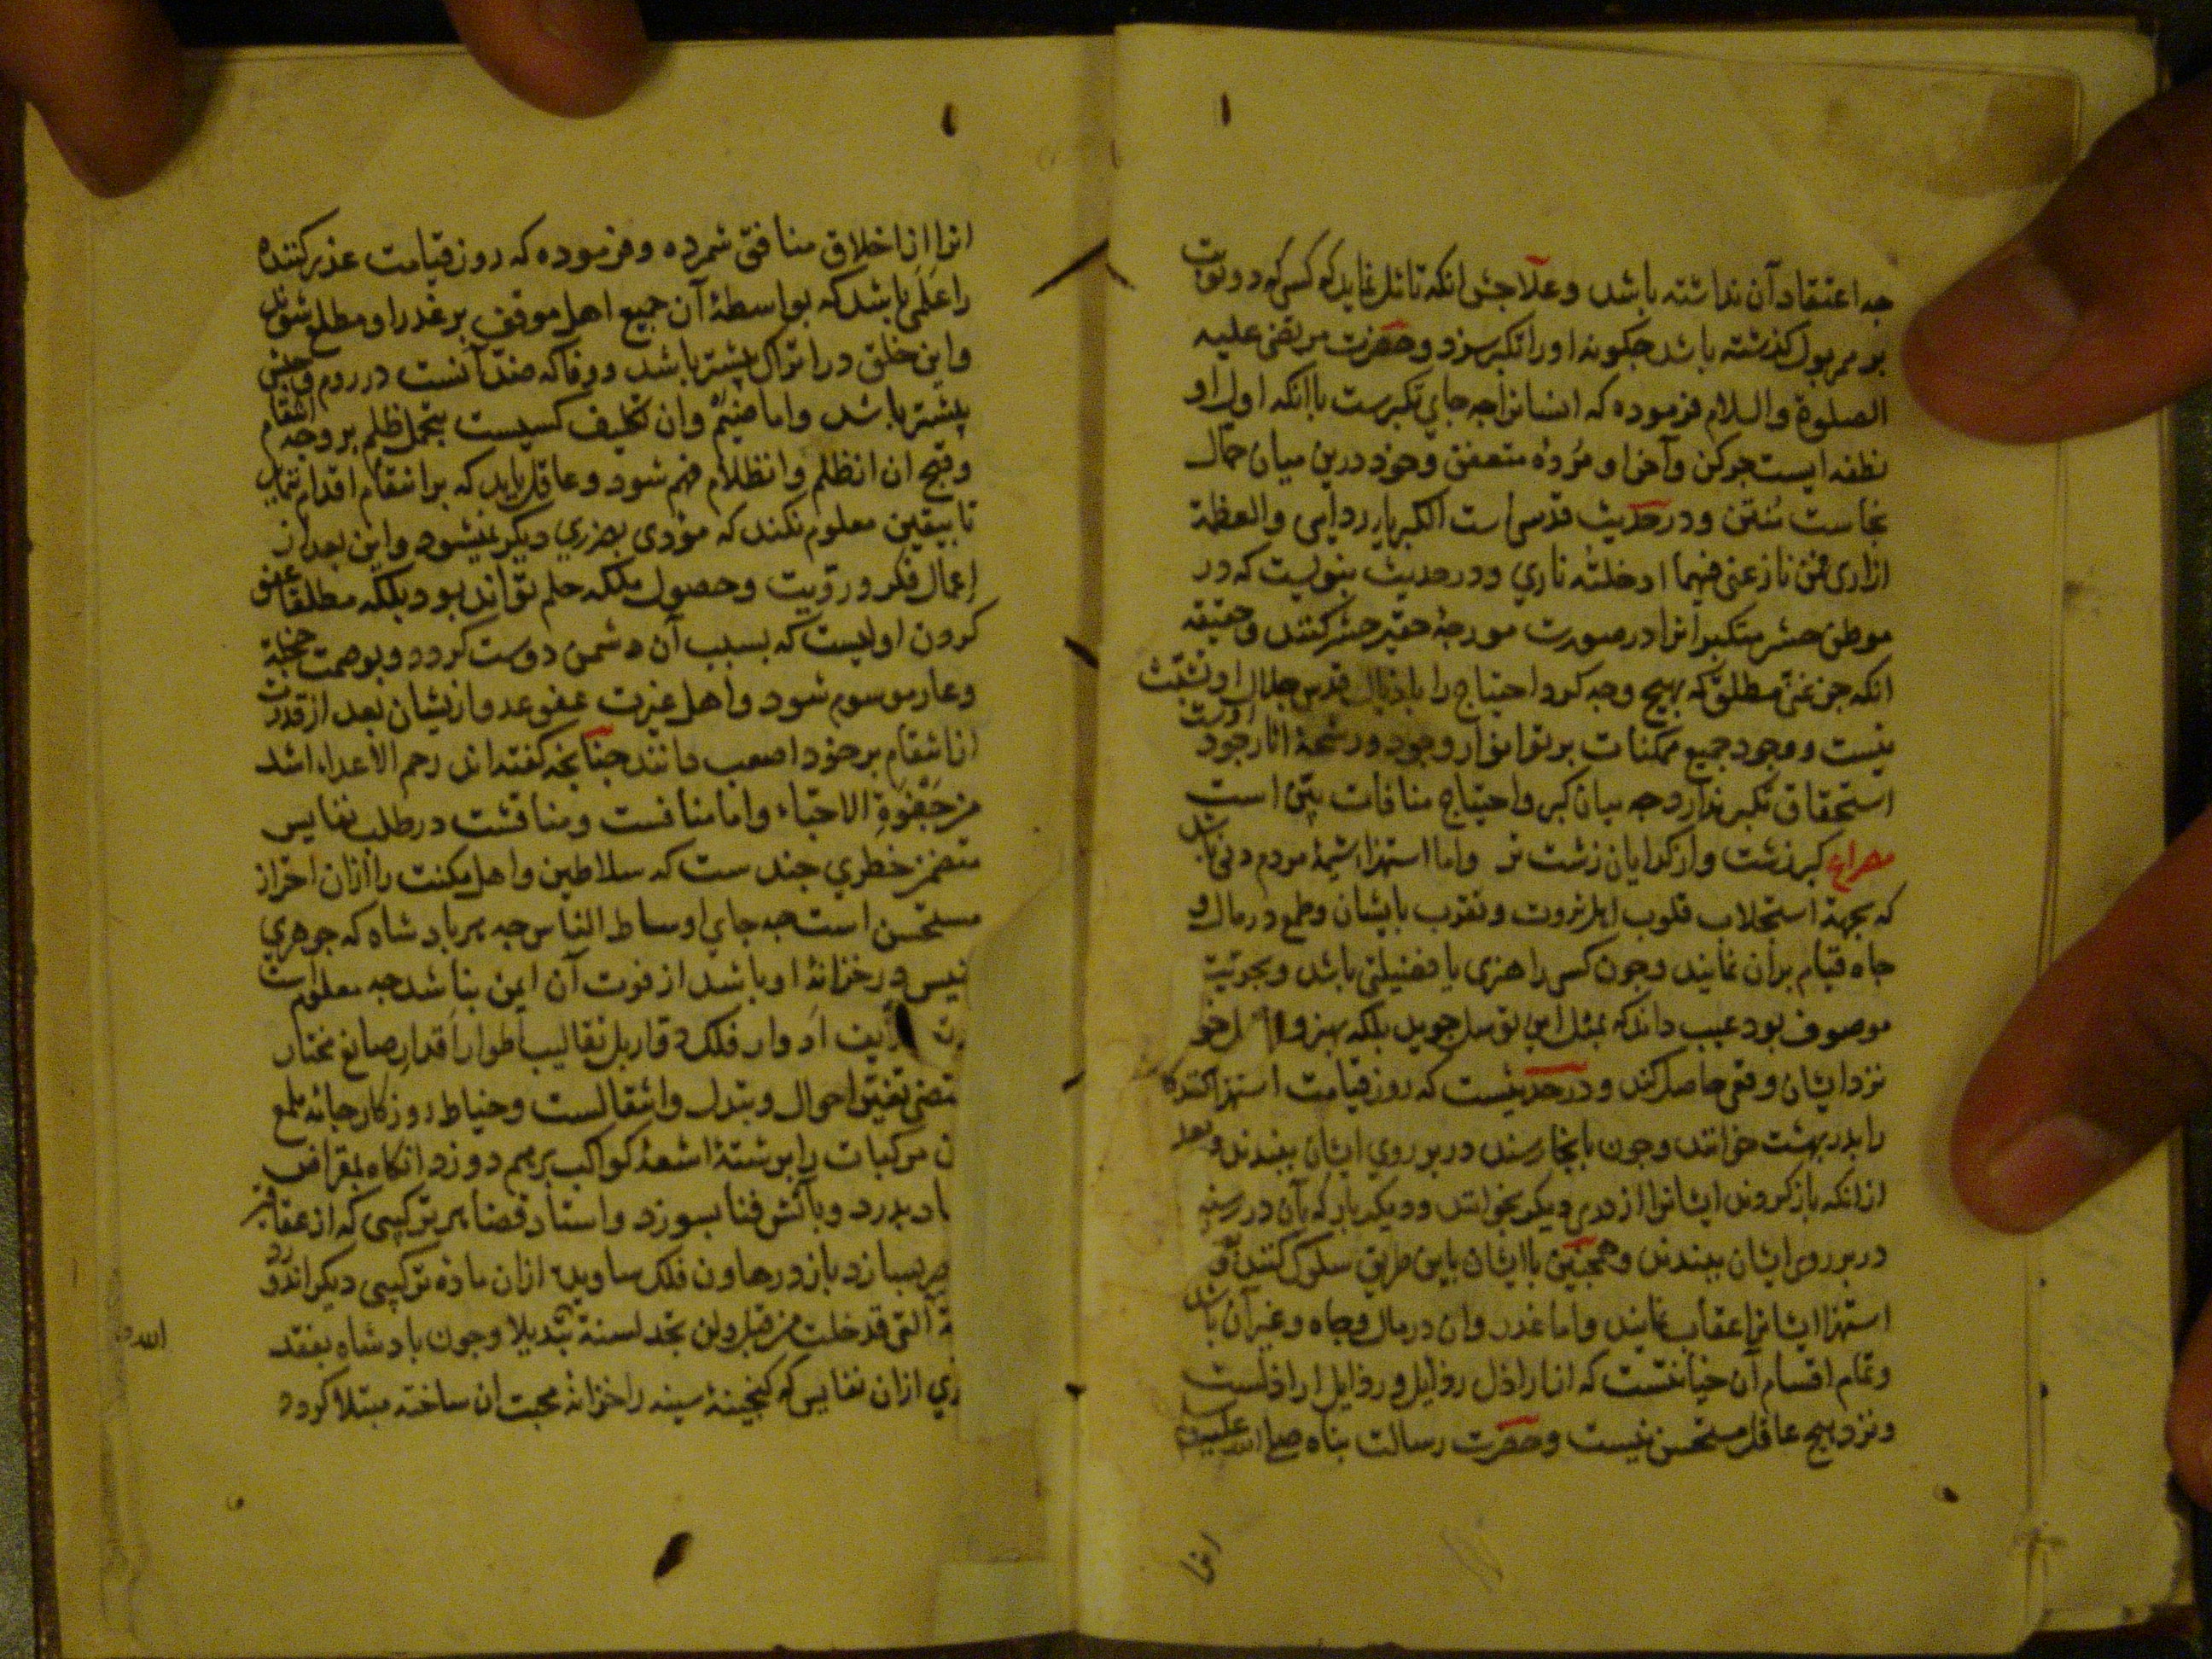 جه اعتقاد آن نداشته باشد وعلاجش انکه تامل نماید که کسی که دو نوبت
بر ممر بول کذشته باشد جکونه اورا تکبر سزد وحضرت مرتضی علیه
الصلوة والسلام فرموده که انسانرا جه جای تکبرست با انکه اول او
نطفه ایست جرکن وآخر او مرده متعفن وخود درین میان حمال
نجاست منتن ودر حدیث قدسی است الکبریاء ردایی والعظمة
ازاری فمن نازعنی فیهما ادخلته ناری ودر حدیث نبویست که در
موطن حشر متکبرانرا در صورت مورجهٔ حقیر حشر کنند وحقیقه
انکه جز غنی مطلق که بهیج وجه کرد احتیاج را باذیال قدس جلال او تشبث
نیست ووجود جمیع ممکنات برتو انوار وجود ورشحهٔ اثار جود اوست
استحقاق تکبر ندارد جه میان کبر واحتیاج منافات بین است
مصراع کبر زشت واز کدایان زشت تر واما استهزا شیمهٔ مردم دنی باشد
که بجهة استجلاب قلوب اهل ثروت وتقرب بایشان وطمع در مال و
جاه قیام بران نمایند وجون کسی را هنری یا فضیلتی باشد وبحریت
موصوف بود عیب داند که بمثل این توسل جوید بلکه بهنر و
نزد ایشان وقعی حاصل کند ودر حدیثست که روز قیامت استهزا کنندکان
را بدر بهشت خوانند وجون بانجا رسند در بر روی ایشان ببندند وبعد
از انکه باز کردند ایشانرا از دری دیکر بخوانند ودیکر بار که بآن در رسند
در بر روی ایشان ببندند وهمجنین با ایشان باین طریق سلوک کنند و
استهزا ایشانرا عقاب نمایند واما غدر وان در مال وجاه وغیر آن باشد
وتمام اقسام آن خیانتست که انرا ارذل رذایل ورذایل اراذلست
ونزد هیج عاقل مستحسن نیست وحضرت رسالت بناه صلی الله علیه
انرا
انرا از اخلاق منافق شمرده وفرموده که روز قیامت عذر کننده
را علمی باشد که بواسطهٔ آن جمیع اهل موقف بر غدر او مطلع شوند
واین خلق در اتراک بیشتر باشد ووفا که ضد آنست در روم وحبش
بیشتر باشد واما ضیم وان تکلیف کسیست بتحمل ظلم بر وجه انتقام
وقبح ان از ظلم وانظلام فهم شود وعاقل باید که بر انتقام اقدام ننماید
تا بیقین معلوم نکند که مؤدی بضرری دیکر نمیشود واین بعد از
اعمال فکر ورویت وحصول ملکه حلم تواند بود بلکه مطلقا عفو
کردن اولیست که بسبب آن دشمن دوست کردد وبوصمت
وعار موسوم شود واهل عزت عفو عدو از یشان بعد از قدرت
از انتقام بر خود اصعب دانند جنانجه کفته اند رحم الاعداء اشد
من جفوة الاحباء واما منافست ومناقشت در طلب نفایس
متضمن خطری جند ست که سلاطین واهل مکنت را ازان احتراز
مستحسن است جه جای اوساط الناس جه هر بادشاه که جوهری
نفیس در خزانهٔ او باشد از فوت آن ایمن نباشد جه معلوم است
ادوار فلک دوار بل تقالیب اطوار اقدار صانع مختار
تغیر احوال وتبدل وانتقالست وخیاط روزکار جامهٔ ملمع
مرکبات را برشتهٔ اشعهٔ کواکب برهم دوزد انکاه بمقراض
بدرد وبآتش فنا بسوزد واستاد قضا هر ترکیبی که از عقاقیر
بسازد باز در هاون فلک ساویده ازان ماده ترکیبی دیکر اندوزد
التی قد خلت من قبل ولن تجد لسنة تبدیلا وجون بادشاه بفقد
ازان نفایس که کنجینهٔ سینه را خزانهٔ محبت ان ساخته مبتلا کردد
الله